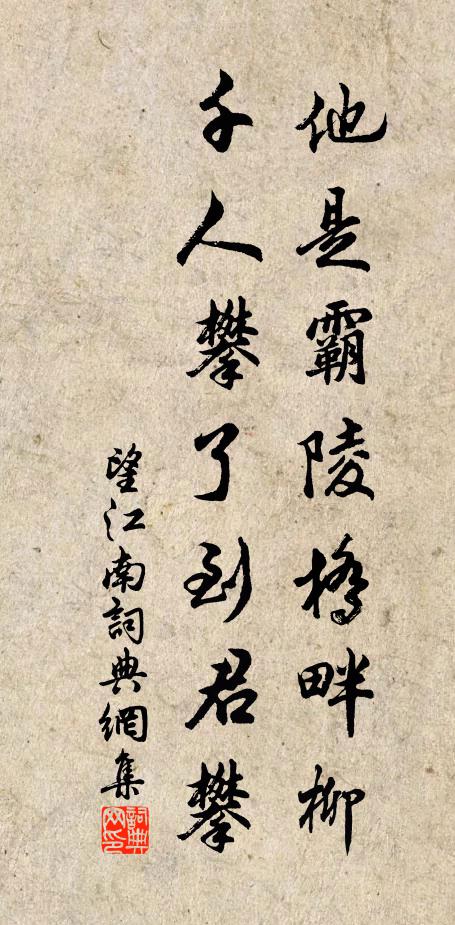 他是霸陵橋畔柳
千人攀了到君攀
望江南詞典網集
詞典網印